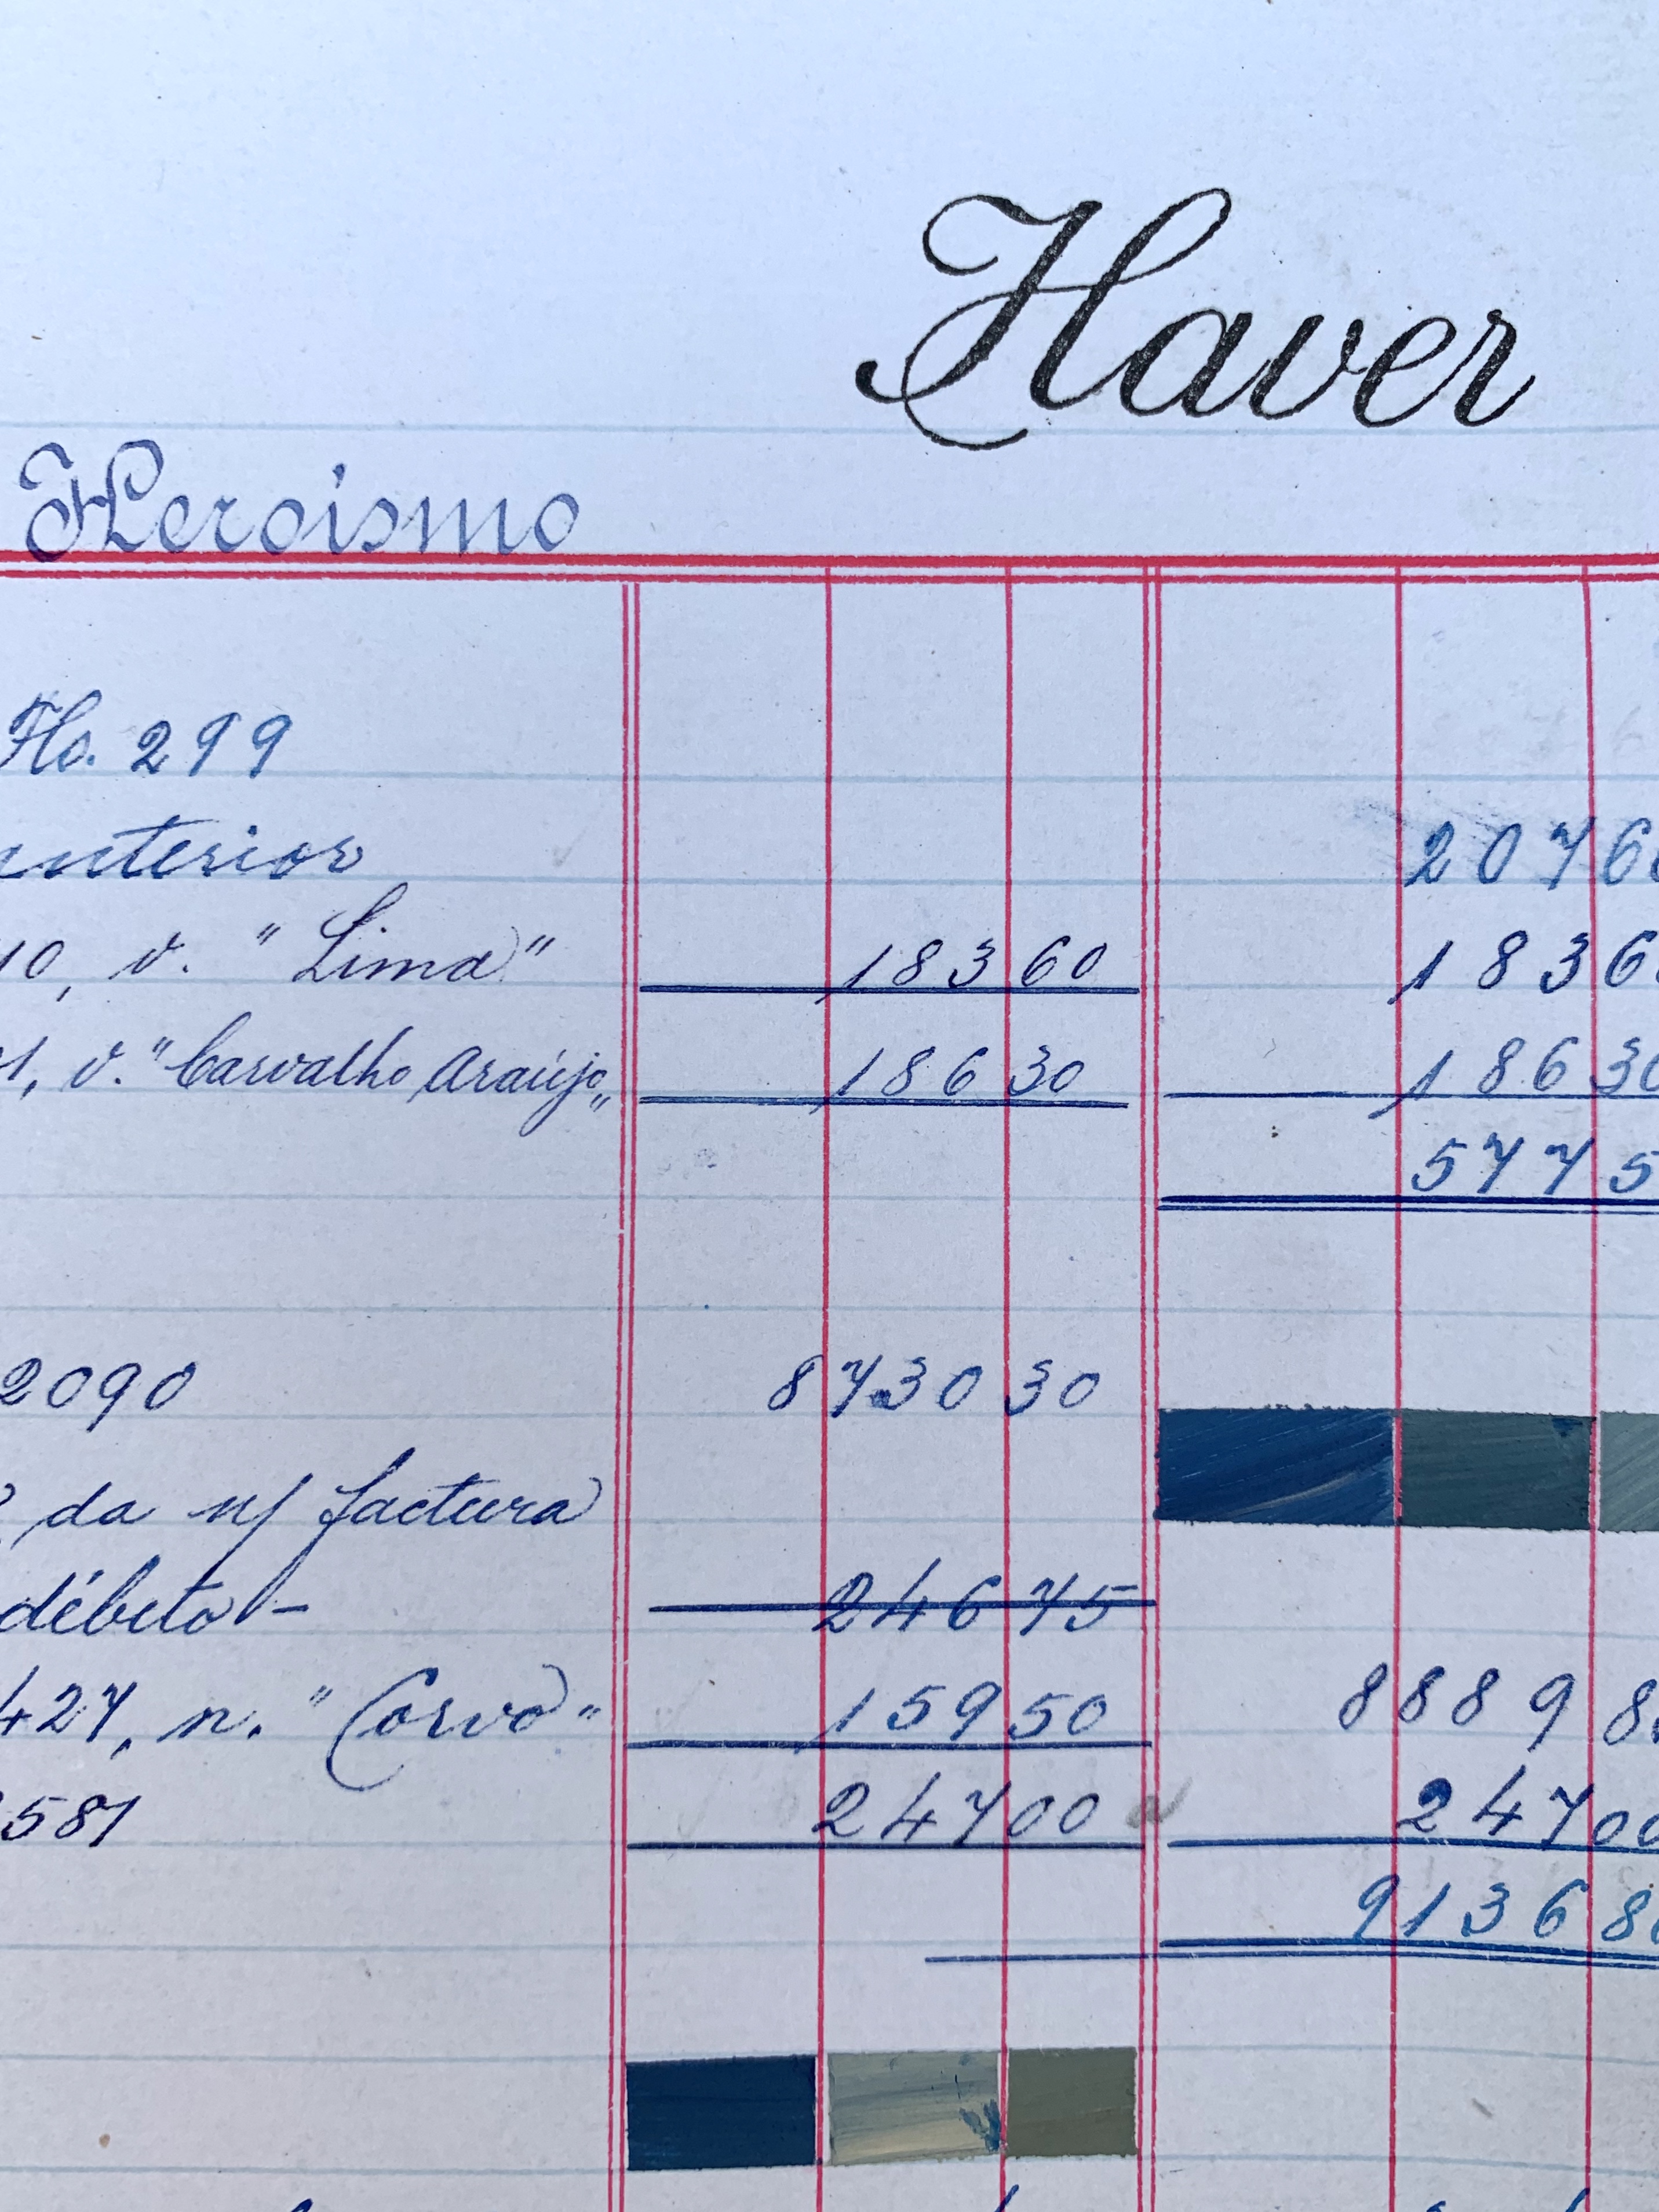 Haver
Heroismo
Flo. 299
anterior 2076
10, v. "Lima" 18360 1836
1, v. "Carvalho Araújo" 18630 18630
5775
2090 873030
da n/ factura
débito - 24675
427, n. "Corvo" 15950 88898
581 24700 24700
91368